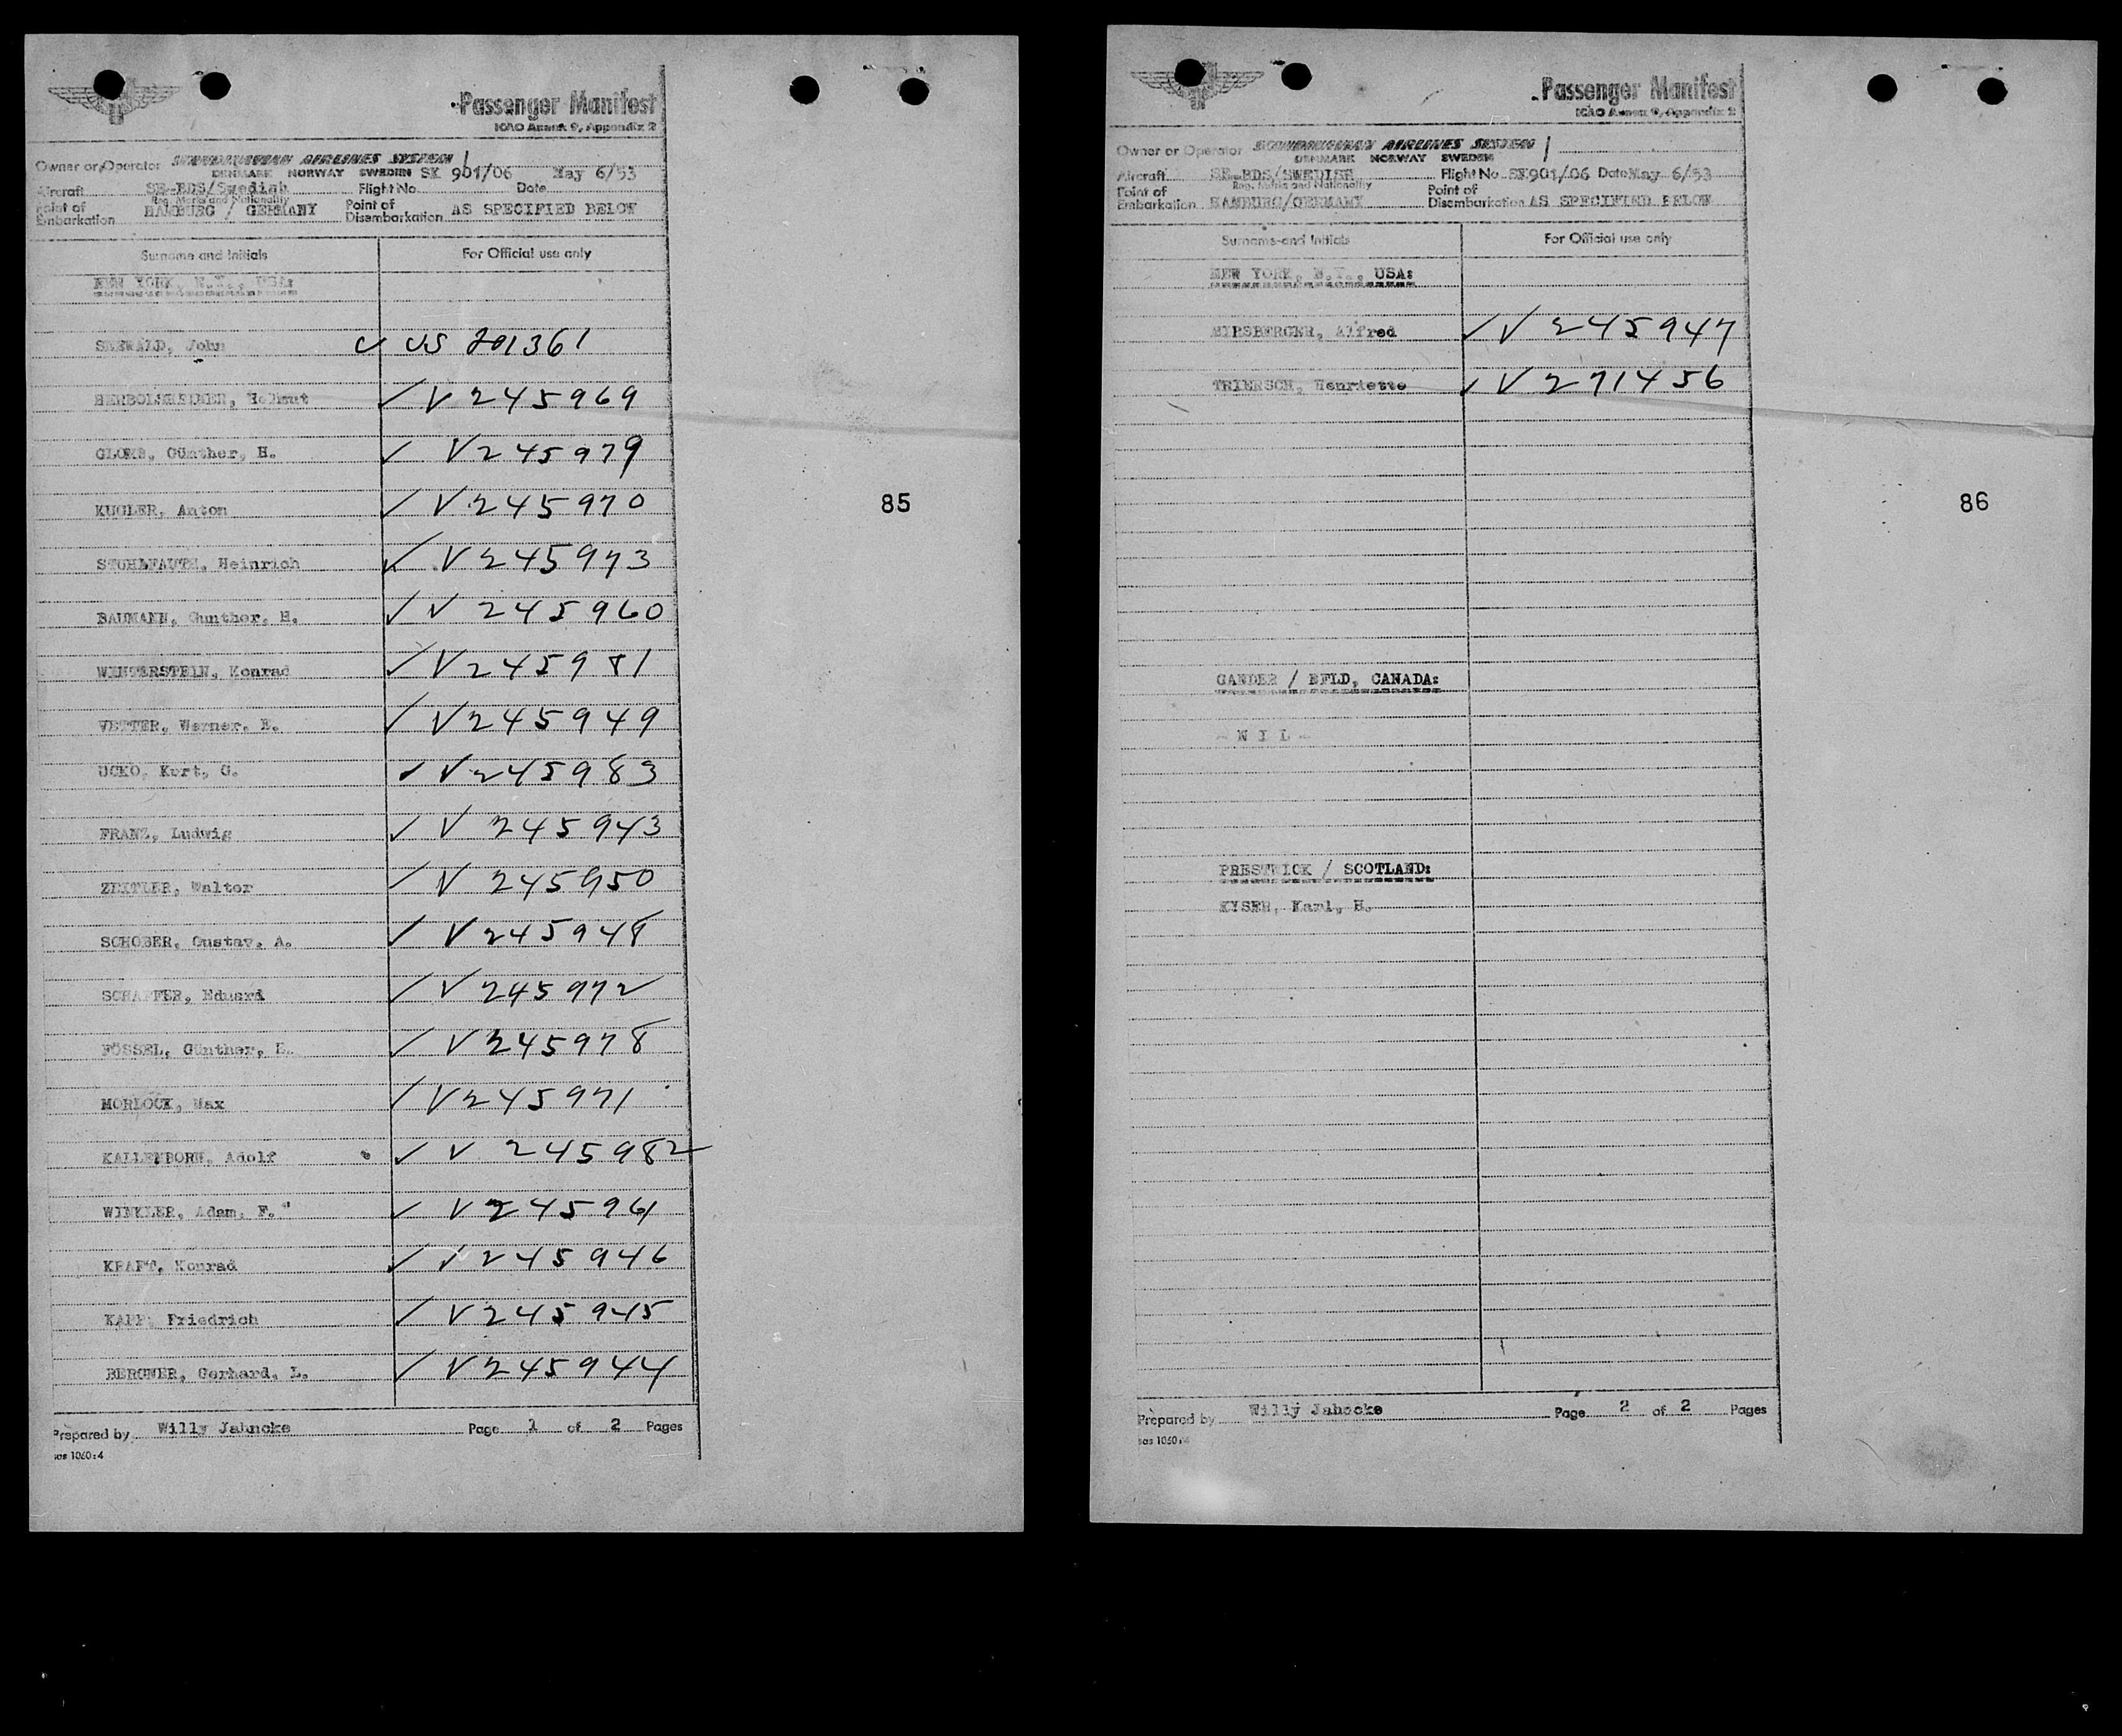 Passenger Manifest
ICAO Annex 9, Appendix 2
Owner or Operator SCANDINAVIAN AIRLINES SYSTEM
DENMARK NORWAY SWEDEN SK 901/06 May 6/53
Aircraft SE-BDS/Swedish Flight No. Date
Reg. Marks and Nationality
Point of Embarkation HAMBURG / GERMANY Point of Disembarkation AS SPECIFIED BELOW
Surname and Initials For Official use only
NEW YORK, N.Y., USA:
SEEWALD, John V US 201361
HERBOLSHEIMER, Helmut ✓ V 245969
GLOMB, Günther, H. ✓ V 245979
KUGLER, Anton ✓ V 245970
STUHLFAUTH, Heinrich ✓ V 245973
BAUMANN, Gunther, H. ✓ V 245960
WINTERSTEIN, Konrad ✓ V 245981
VETTER, Werner, E. ✓ V 245949
UCKO, Kurt, G. ✓ V 245983
FRANZ, Ludwig ✓ V 245943
ZEITLER, Walter ✓ V 245950
SCHOBER, Gustav, A. ✓ V 245948
SCHAFFER, Eduard ✓ V 245972
FÖSSEL, Günther, E. ✓ V 245978
MORLOCK, Max ✓ V 245971
KALLENBORN, Adolf ✓ V 245982
WINKLER, Adam, F. ✓ V 245961
KRAFT, Konrad ✓ V 245946
KAPP, Friedrich ✓ V 245945
BERGNER, Gerhard, L. ✓ V 245944
Prepared by Willy Jahncke Page 1 of 2 Pages
sas 1060:4
85
Passenger Manifest
ICAO Annex 9, Appendix 2
Owner or Operator SCANDINAVIAN AIRLINES SYSTEM
DENMARK NORWAY SWEDEN
Aircraft SE-BDS/SWEDISH Flight No. SK901/06 Date May 6/53
Reg. Marks and Nationality
Point of Embarkation HAMBURG/GERMANY Point of Disembarkation AS SPECIFIED BELOW
Surname and Initials For Official use only
NEW YORK, N.Y., USA:
MIRSBERGER, Alfred ✓ V 245947
TRIERSCH, Henriette ✓ V 271456
GANDER / NFLD, CANADA:
- N I L -
PRESTWICK / SCOTLAND:
KYSER, Karl, H.
Prepared by Willy Jahncke Page 2 of 2 Pages
sas 1060:4
86